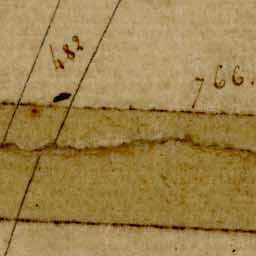 482
766.